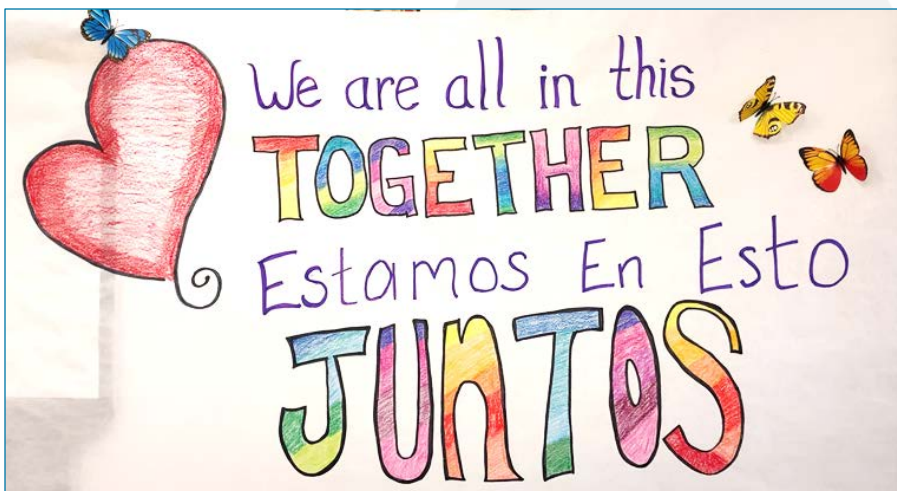 We are all in this
TOGETHER
Estamos En Esto
JUnTOS